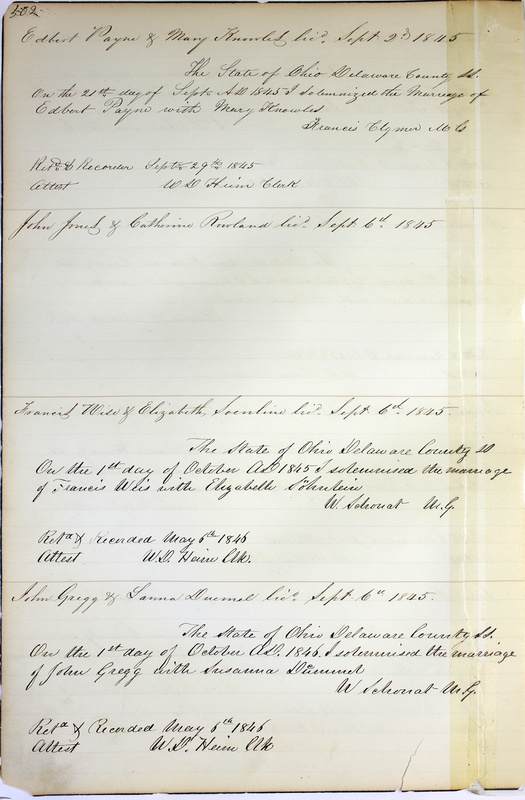 502
Edbert Payne & Mary Knowles lic'd. Sept. 2d 1845
The State of Ohio Delaware County SS.
On the 21st day of Sept. A.D 1845 I Solemnized the Marriage of
Edbert Payne with Mary Knowles
Francis Clymer M G
Retd & Recorder Sept. 29th 1845
Attest W D Heim Clerk
John Jones & Catherine Rowland lic'd Sept. 6d. 1845
Francis Wise & Elizabeth, lic'd. Sept. 6d. 1845.
The State of Ohio Delaware County SS
On the 1st day of October A.D. 1845 I solemnised the marriage
of Francis Weis with Elizabeth Söhnlein
W. Schonat M.G.
Retd & Recorded May 6th 1846
Attest W.D. Heim Clk.
John Gregg & Sanna lic'd. Sept. 6th 1845.
The State of Ohio Delaware County SS.
On the 1st day of October A.D. 1846. I solemnised the marriage
of John Gregg with Susanna Dümmel
W Schonat M.G.
Retd & Recorded May 6th 1846
Attest W.D. Heim Clk